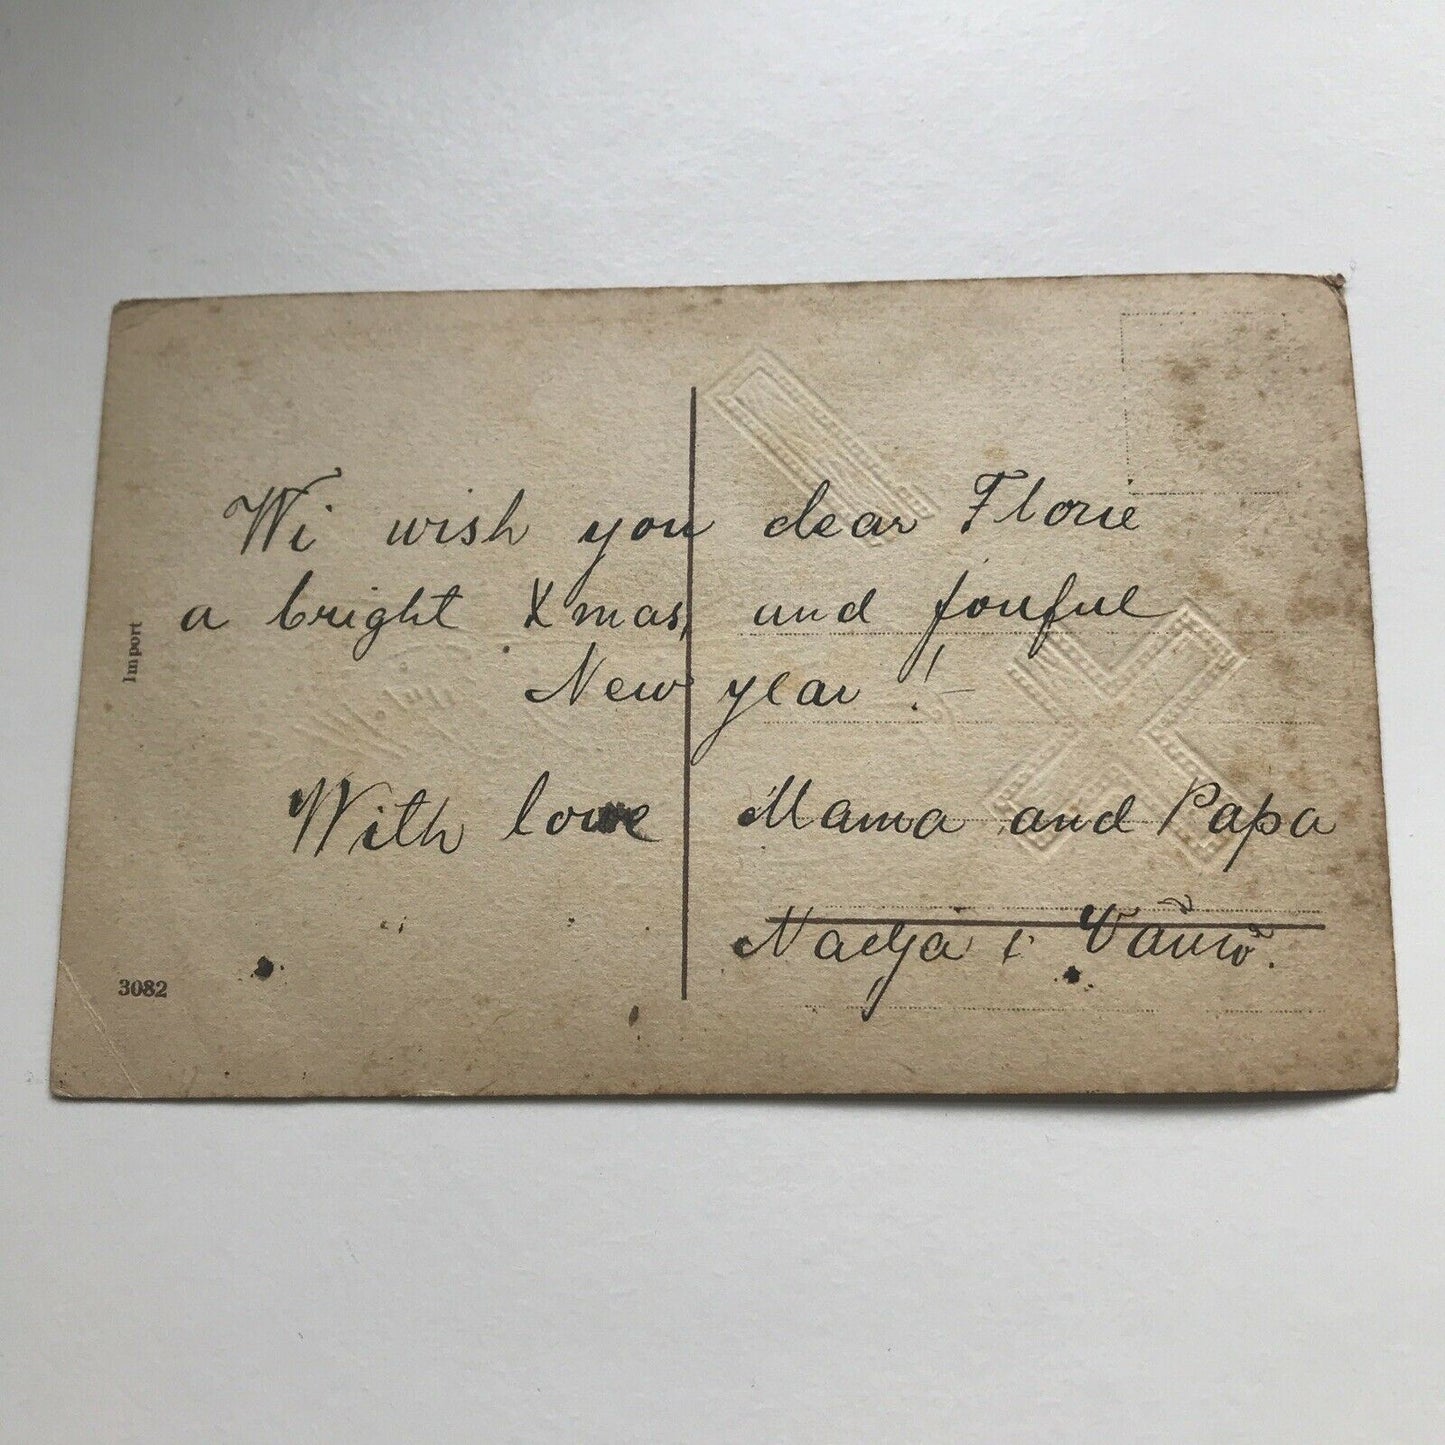 Wi wish you dear Florie
a bright Xmas, and fouful
New year!
With love Mama and Papa
Nadja &
Import
3082